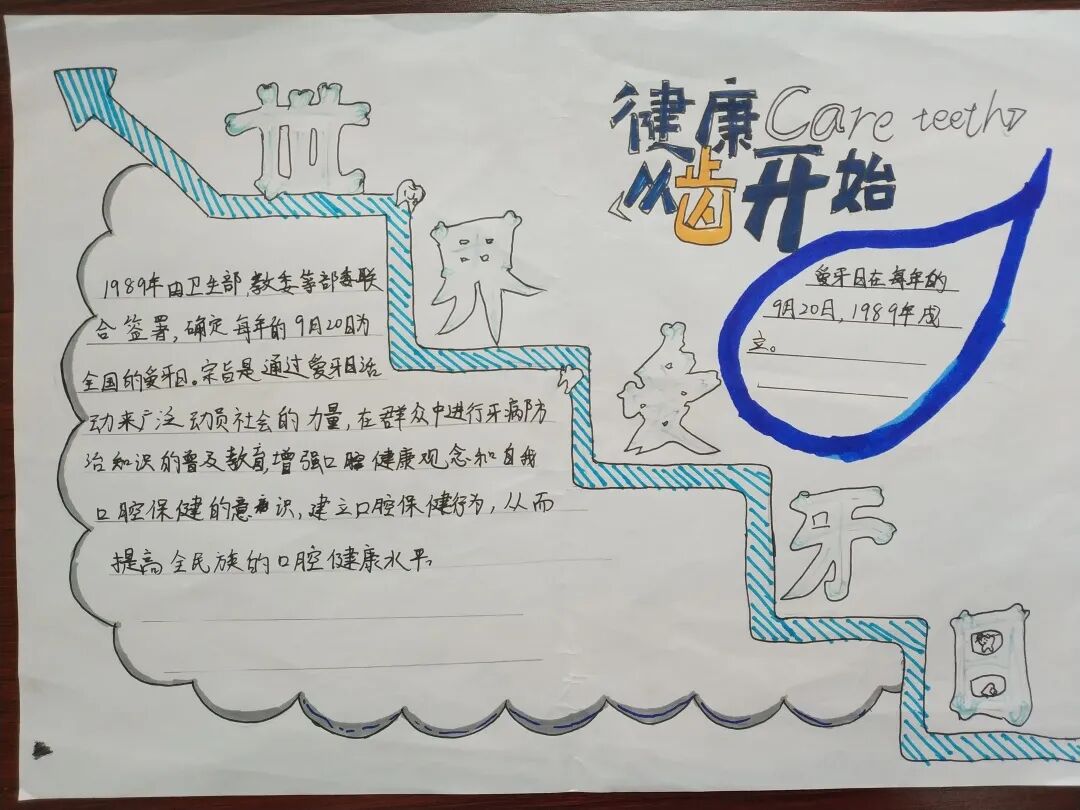 世界爱牙日
健康 Care teeth
从齿开始
1989年由卫生部,教委等部委联
合签署,确定每年的9月20日为
全国的爱牙日。宗旨是通过爱牙日活
动来广泛动员社会的力量,在群众中进行牙病防
治知识的普及教育,增强口腔健康观念和自我
口腔保健的意识,建立口腔保健行为,从而
提高全民族的口腔健康水平。
爱牙日在每年的
9月20日,1989年成
立。